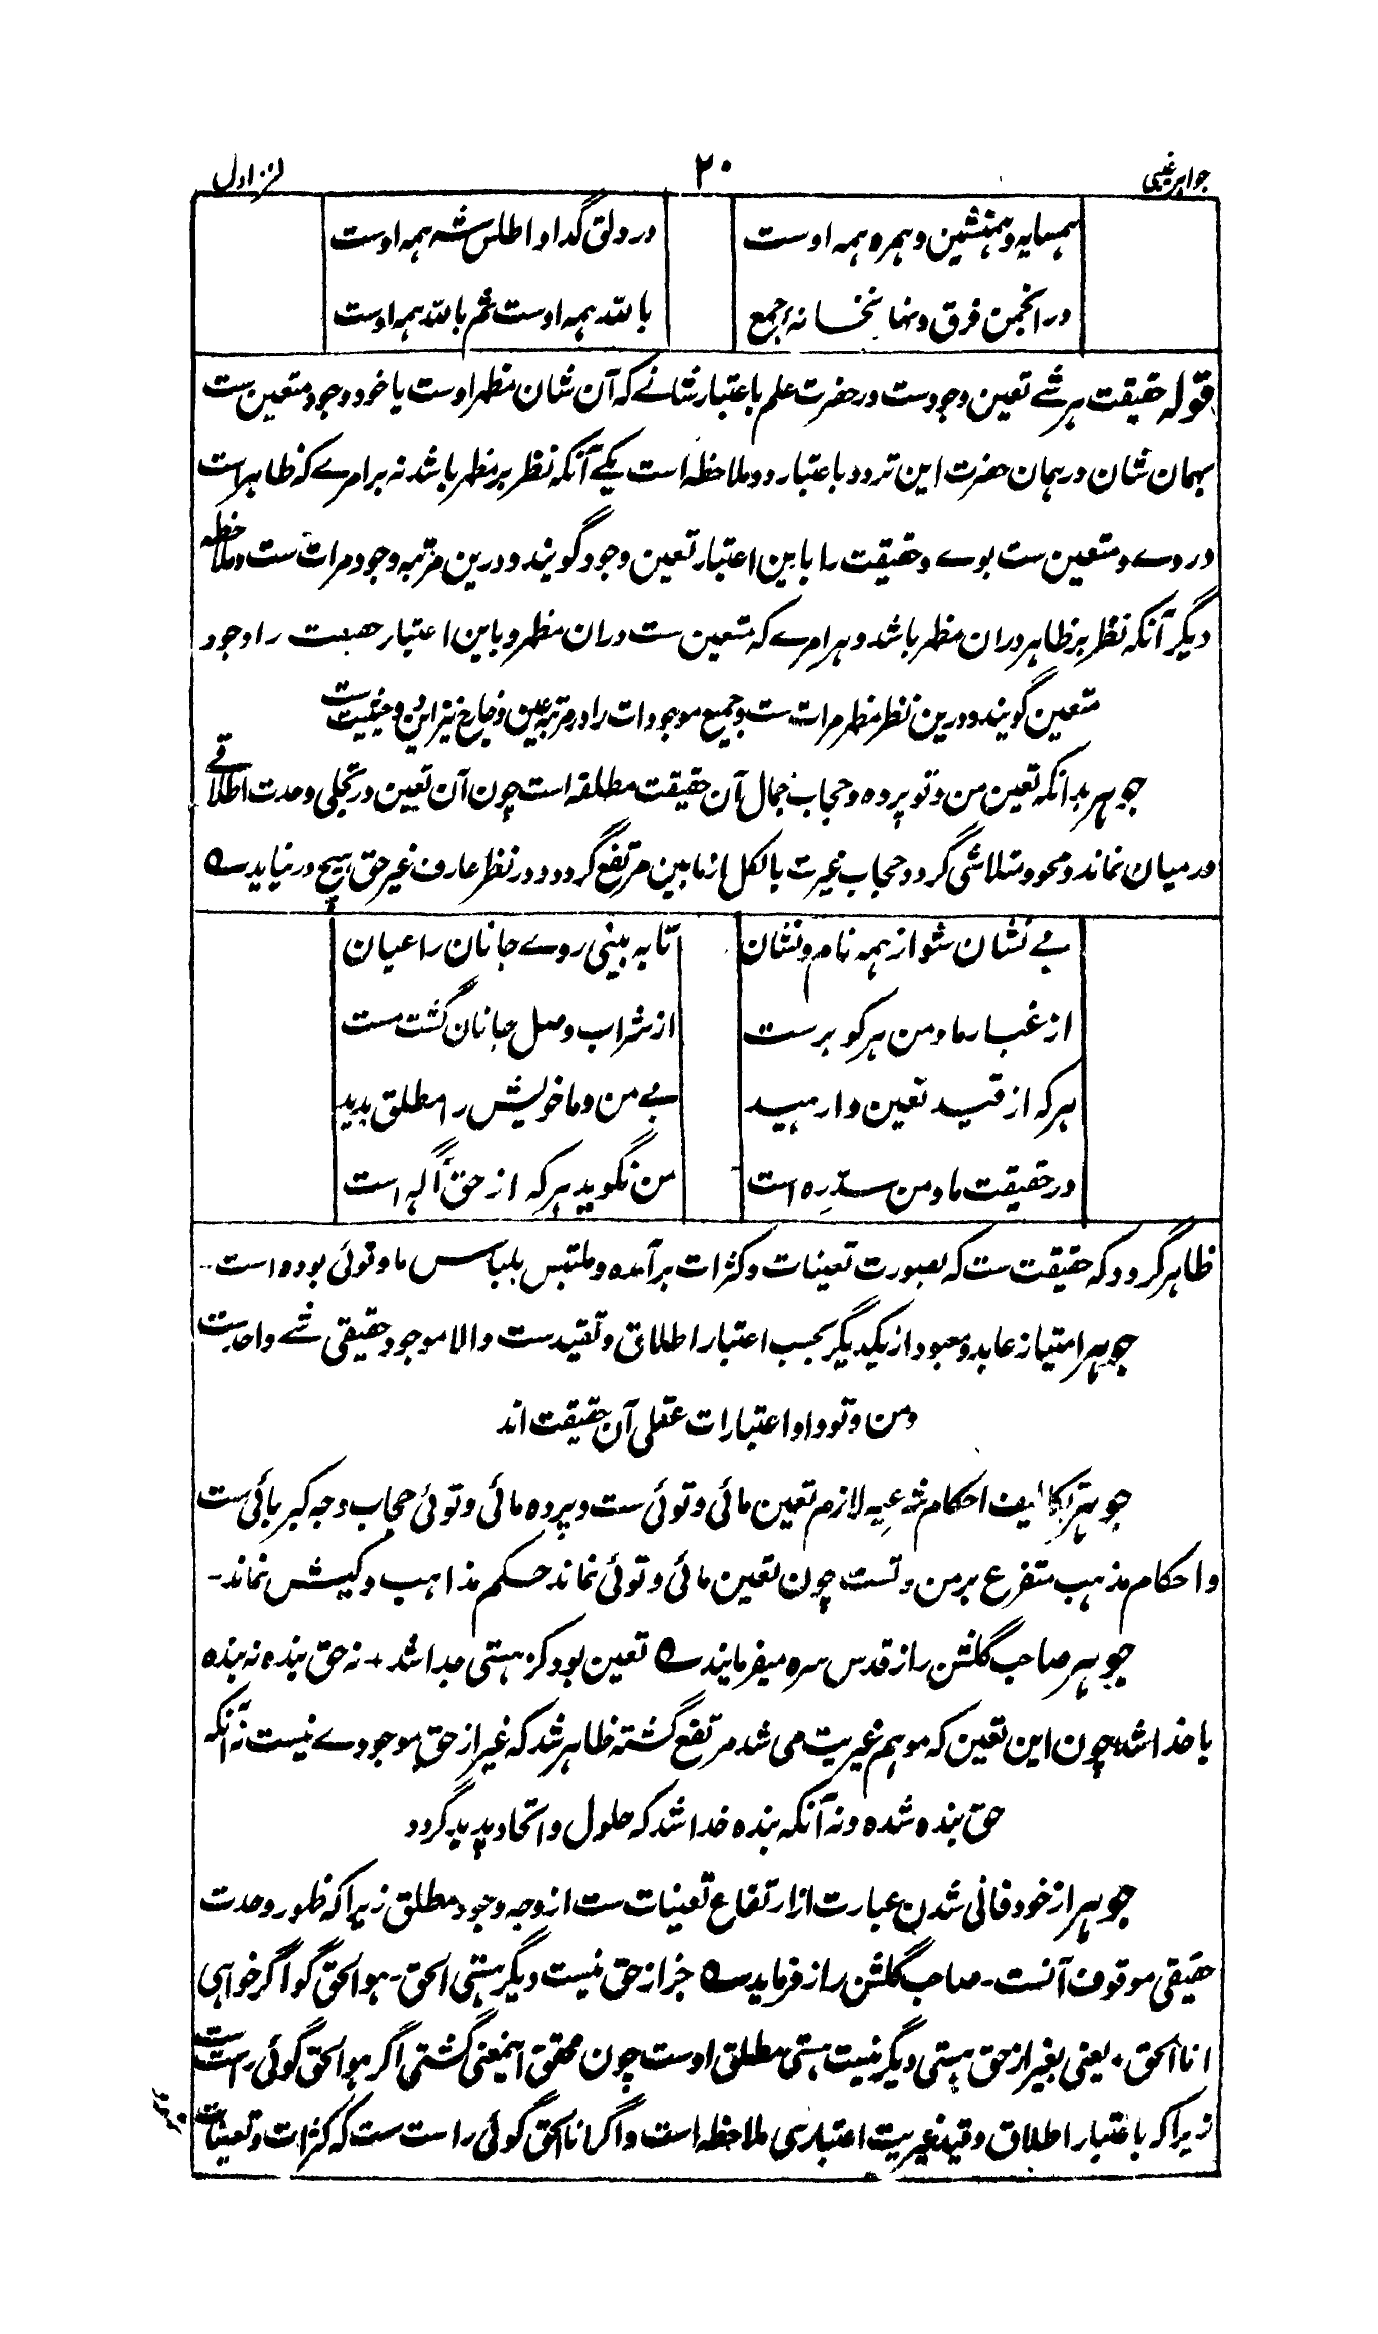 جواہر غیبی ۲۰ کنز اول
ہمسایہ و ہمنشین و ہمرہ ہمہ اوست در دلق گدا و اطلس شہ ہمہ اوست
در انجمن فرق و نہانخانۂ جمع باللہ ہمہ اوست ثم باللہ ہمہ اوست
قولہ حقیقت ہر شے تعین وجودست در حضرت علم باعتبار شانے کہ آن شان مظہر اوست یا خود وجود متعین ست
بہمان شان در ہمان حضرت این تردد باعتبار دو ملاحظہ است یکے آنکہ نظر بر مظہر باشد نہ بر امرے کہ ظاہر است
در وے و متعین ست بوے و حقیقت را باین اعتبار تعین وجود گویند و درین مرتبہ وجود مرات ست و ملاحظہ
دیگر آنکہ نظر بر ظاہر دران مظہر باشد و ہر امرے کہ متعین ست دران مظہر و باین اعتبار حقیقت را وجود
متعین گویند و درین نظر مظہر مرات ست و جمیع موجودات را در مرتبہ عین و خارج نیز این دو حیثیت ست
جوہر بدانکہ تعین من و تو پردہ و حجاب جمال آن حقیقت مطلقہ است چون آن تعین در تجلی وحدت اطلاقے
در میان نماند و محو و متلاشی گردد و حجاب غیرت بالکل از مابین مرتفع گردد و در نظر عارف غیر حق ہیچ در نیاید ے
بے نشان شو از ہمہ نام و نشان تا بہ بینی روے جانان را عیان
از غبار ما و من ہر کو برست از شراب وصل جانان گشت مست
ہر کہ از قید تعین وارہید بے من و ما خویش را مطلق بدید
در حقیقت ما و من سد رہ است من نگوید ہر کہ از حق آگہ است
ظاہر گردد کہ حقیقت ست کہ بصورت تعینات و کثرات برآمدہ و ملتبس بلباس ما و توئی بودہ است۔
جوہر امتیاز عابد و معبود از یکدیگر بحسب اعتبار اطلاق و تقیدست والا موجود حقیقی شے واحدست
و من و تو و او اعتبارات عقلی آن حقیقت اند
جوہر تکالیف احکام شرعیہ لازم تعین مائی و توئی ست و پردہ مائی و توئی حجاب وجہ کبریائی ست
و احکام مذہب متفرع بر من و تست چون تعین مائی و توئی نماند حکم مذاہب و کیش نماند۔
جوہر صاحب گلشن راز قدس سرہ میفرمایند ے تعین بود کز ہستی جدا شد ٭ نہ حق بندہ نہ بندہ
با خدا شد چون این تعین کہ موہم غیریت می شد مرتفع گشتہ ظاہر شد کہ غیر از حق موجودے نیست نہ آنکہ
حق بندہ شدہ و نہ آنکہ بندہ خدا شد کہ حلول و اتحاد پدید گردد
جوہر از خود فانی شدن عبارت از ارتفاع تعینات ست از وجہ وجود مطلق زیرا کہ ظہور وحدت
حقیقی موقوف آنست۔ صاحب گلشن راز فرماید ے جز از حق نیست دیگر ہستی الحق۔ ہو الحق گو اگر خواہی
انا الحق ٭ یعنی بغیر از حق ہستی دیگر نیست ہستی مطلق اوست چون محقق آنمعنی گشتی اگر ہو الحق گوئی راست ست
زیرا کہ باعتبار اطلاق و قید غیریت اعتباری ملاحظہ است و اگر انا الحق گوئی راست ست کہ کثرات و تعینات